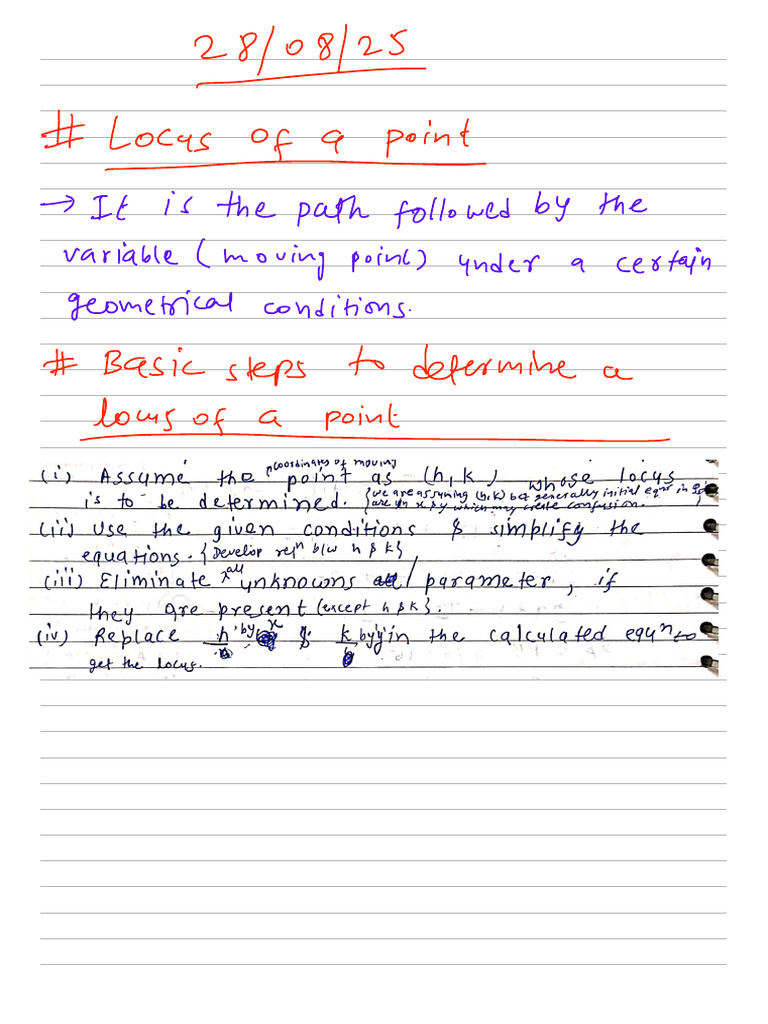 28/08/25
# Locus of a point
→ It is the path followed by the
variable (moving point) under a certain
geometrical conditions.
# Basic steps to determine a
locus of a point
(i) Assume the coordinates of moving point as (h, k) whose locus
is to be determined. {we are assuming (h, k) bcz generally initial eqns in
are in x & y which may create confussion.}
(ii) Use the given conditions & simplify the
equations. {Develop reln b/w h & k}
(iii) Eliminate all unknowns / parameter, if
they are present (except h & k}.
(iv) Replace h by x & k by y in the calculated equn to
get the locus.